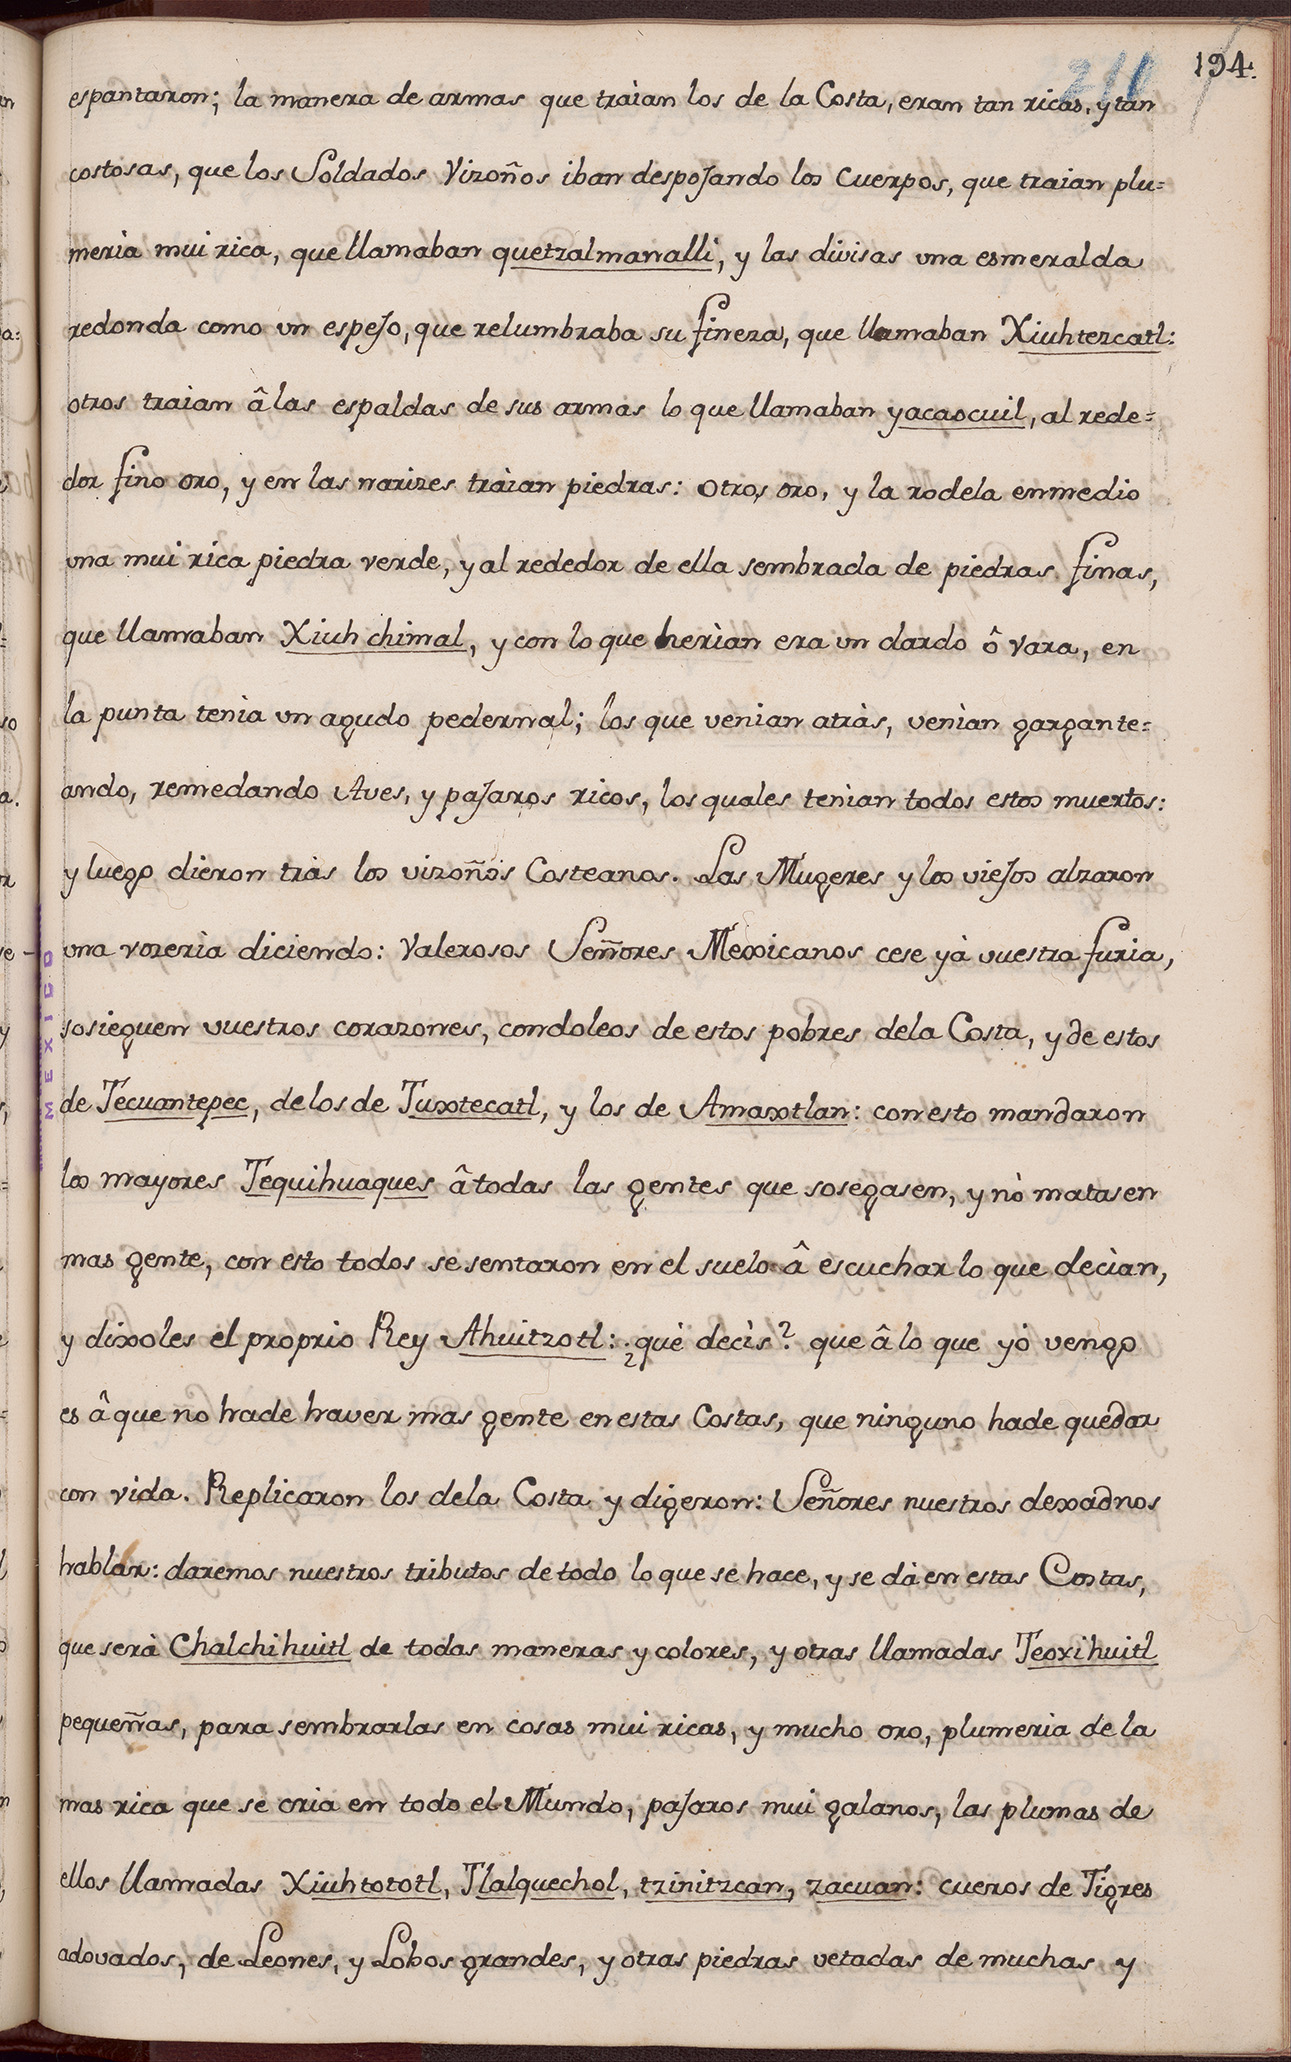 211 194.
espantaron; la manera de armas que traìan los de la Costa, eran tan ricas, y tan
costosas, que los Soldados Vizoños iban despojando los cuerpos, que traian plu=
merìa mui rica, que llamaban quetzalmanalli, y las divisas una esmeralda
redonda como un espejo, que relumbraba su fineza, que llamaban Xiuhtezcatl:
otros traian â las espaldas de sus armas lo que llamaban yacaocuil, al rede=
dor fino oro, y en las narizes traìan piedras: otros oro, y la rodela enmedio
una mui rica piedra verde, y al rededor de ella sembrada de piedras finas,
que llamaban Xiuh chimal, y con lo que herìan era un dardo ô vara, en
la punta tenìa un agudo pedernal; los que venian atràs, venìan gargante=
ando, remedando Aves, y pajaros ricos, los quales tenìan todos estos muertos:
y luego dieron tràs los vizoños Costeanos. Las Mugeres y los viejos alzaron
una vozerìa diciendo: Valerosos Señores Mexicanos cese yà vuestra furia,
sosieguen vuestros corazones, condoleos de estos pobres dela Costa, y de estos
de Tecuantepec, de los de Tuxtecatl, y los de Amaxtlan: con esto mandaron
los mayores Tequihuaques â todas las gentes que sosegasen, y nò matasen
mas gente, con esto todos se sentaron en el suelo â escuchar lo que decìan,
y dixoles el proprio Rey Ahuitzotl: ¿què decìs? que â lo que yò vengo
es â que no hade haver mas gente en estas Costas, que ninguno hade quedar
con vida. Replicaron los dela Costa y digeron: Señores nuestros dexadnos
hablar: daremos nuestros tributos de todo lo que se hace, y se dà en estas Costas,
que serà Chalchihuitl de todas maneras y colores, y otras llamadas Teoxihuitl
pequeñas, para sembrarlas en cosas mui ricas, y mucho oro, plumeria de la
mas rica que se cria en todo el Mundo, pajaros mui galanos, las plumas de
ellos llamadas Xiuhtototl, Tlalquechol, tzinitzcan, zacuan: cueros de Tigres
adovados, de Leones, y Lobos grandes, y otras piedras vetadas de muchas y
MEXICO